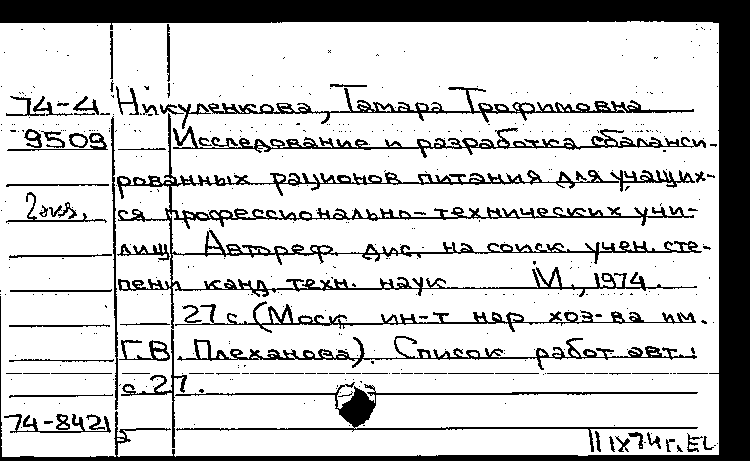 74-4 Никуленкова, Тамара Трофимовна
9509 Исследование и разработка сбаланси-
рованных рационов питания для учащих-
2 экз. ся профессионально-технических учи-
лищ. Автореф. дис. на соиск. учен. сте-
пени канд. техн. наук М., 1974.
27 с. (Моск. ин-т нар. хоз-ва им.
Г.В. Плеханова). Список работ авт.:
с. 27.
74-8421
2
11 IX 74 г. EL